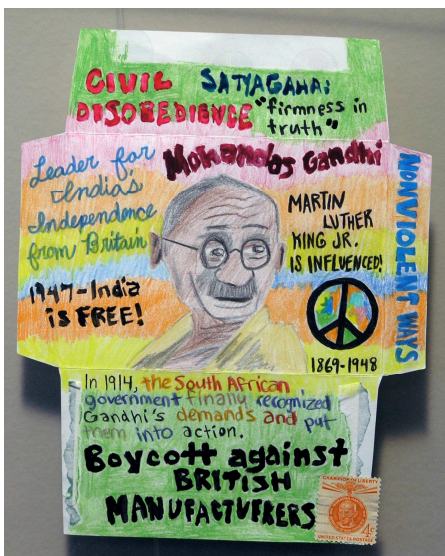 CIVIL
DISOBEDIENCE
SATYAGAHA:
"firmness in
truth"
Leader for
India's
Independence
from Britain
Mohandas Gandhi
MARTIN
LUTHER
KING JR.
IS INFLUENCED!
NONVIOLENT WAYS
1947-India
is FREE!
1869-1948
In 1914, the South African
government finally recognized
Gandhi's demands and put
them into action.
Boycott against
BRITISH
MANUFACTURERS
CHAMPION OF LIBERTY
4¢
UNITED STATES POSTAGE